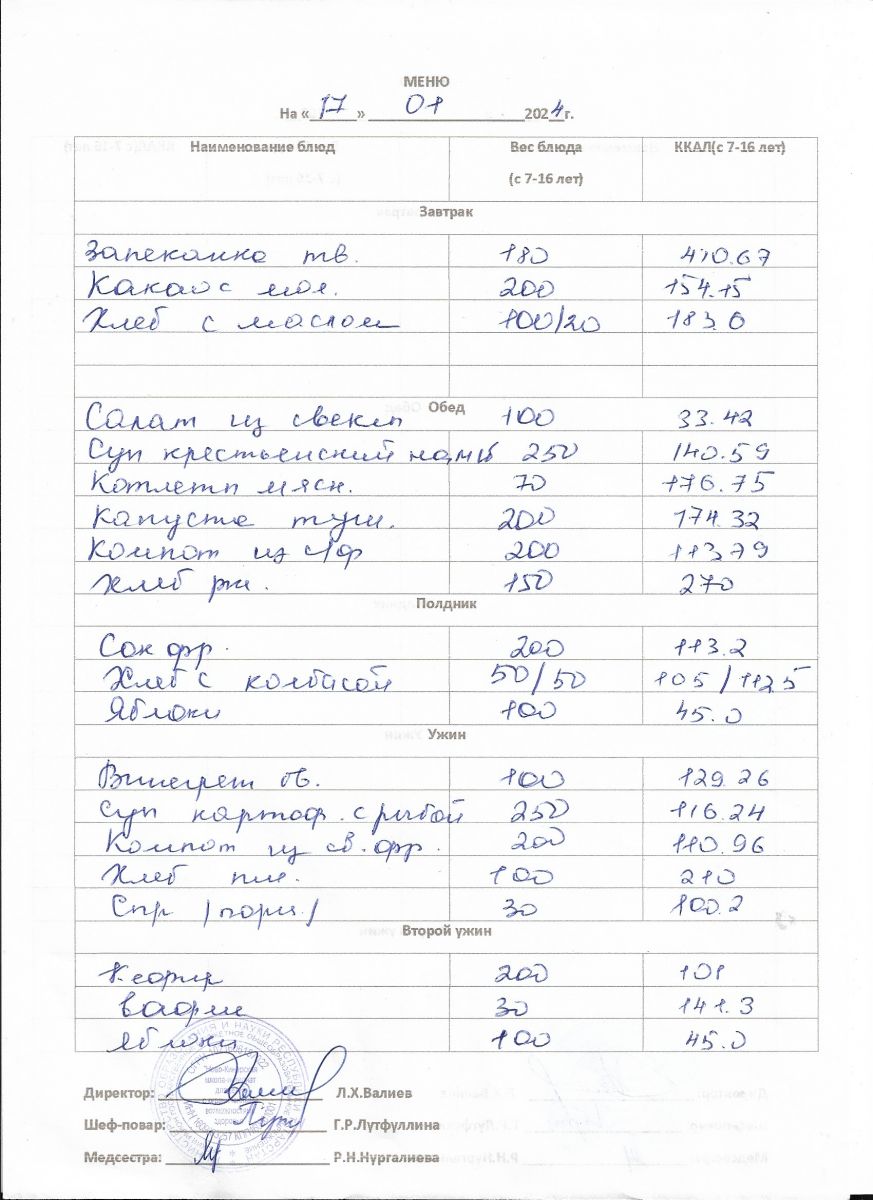 МЕНЮ
На « 17 » 01 2024г.
Наименование блюд Вес блюда (с 7-16 лет) ККАЛ(с 7-16 лет)
Завтрак
Запеканка тв. 180 410.67
Какао с мол. 200 154.15
Хлеб с маслом 100/20 183.0
Обед
Салат из свеклы 100 33.42
Суп крестьянский на м/б 250 140.59
Котлеты мясн. 70 176.75
Капуста туш. 200 174.32
Компот из с/ф 200 113.79
Хлеб рж. 150 270
Полдник
Сок фр. 200 113.2
Хлеб с колбасой 50/50 105/112.5
Яблоки 100 45.0
Ужин
Винегрет ов. 100 129.26
Суп картоф. с рыбой 250 116.24
Компот из св. фр. 200 110.96
Хлеб пш. 100 210
Сыр /порц/ 30 100.2
Второй ужин
Кефир 200 101
Вафли 30 141.3
Яблоки 100 45.0
Директор: Л.Х.Валиев
Шеф-повар: Г.Р.Лутфуллина
Медсестра: Р.Н.Нургалиева